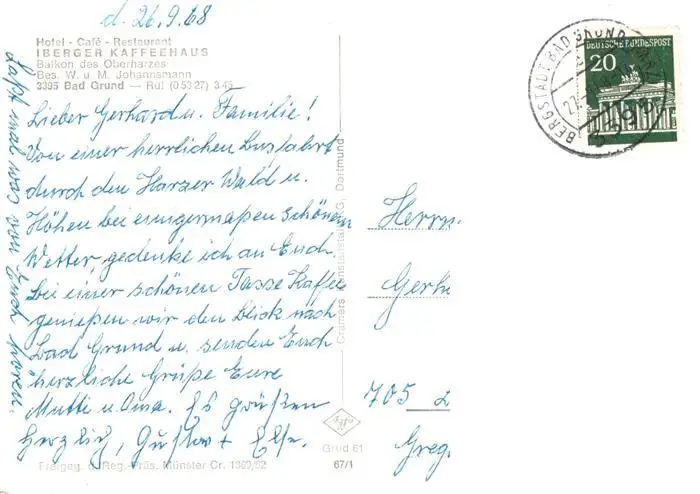 d. 26.9.68
Hotel - Café - Restaurant
IBERGER KAFFEEHAUS
Balkon des Oberharzes
Bes. W. u. M. Johannsmann
3395 Bad Grund — Ruf (0 53 27) 3 45
Lieber Gerhard u. Familie!
Von einer herrlichen Busfahrt
durch den Harzer Wald u.
Höhen bei einigermaßen schönem
Wetter, gedenke ich an Euch.
Bei einer schönen Tasse Kaffee
genießen wir den Blick nach
Bad Grund u. senden Euch
herzliche Grüße Eure
Mutti u. Oma. Es grüßen
herzlich, Gustav + Else.
Laßt mal was von Euch hören.
Freigeg. d. Reg.-Präs. Münster Cr. 1360/62
Cramers Dortmund
Grud 61
67/1
DEUTSCHE BUNDESPOST
20
BERGSTADT BAD GRUND
Herrn
Gerh
705
Greg